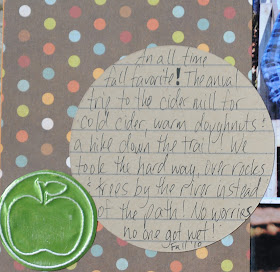 An all time
fall favorite! The anual
trip to the cider mill for
cold cider, warm doughnuts &
a hike down the trail! We
took the hard way, over rocks
& trees by the river instead
of the path! No worries,
no one got wet!
Fall '10